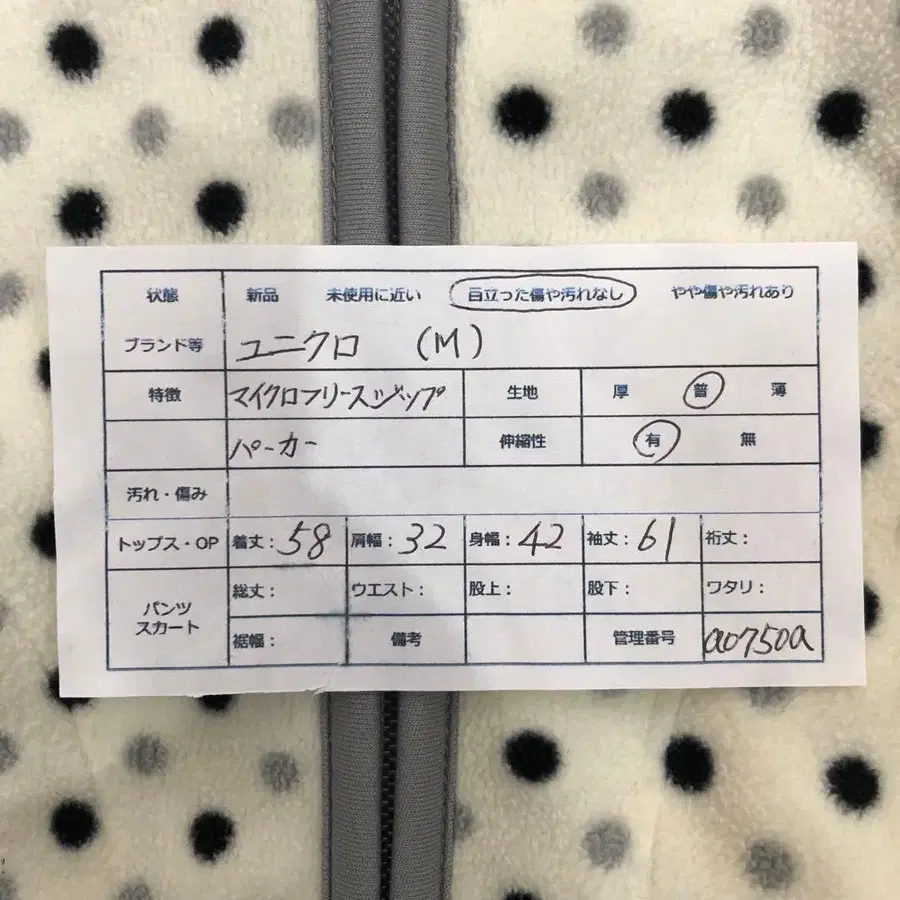 状態 新品 未使用に近い 目立った傷や汚れなし やや傷や汚れあり
ブランド等 ユニクロ (M)
特徴 マイクロフリースジップ 生地 厚 普 薄
パーカー 伸縮性 有 無
汚れ・傷み
トップス・OP 着丈：58 肩幅：32 身幅：42 袖丈：61 裄丈：
パンツ スカート 総丈： ウエスト： 股上： 股下： ワタリ：
裾幅： 備考 管理番号 a0750a